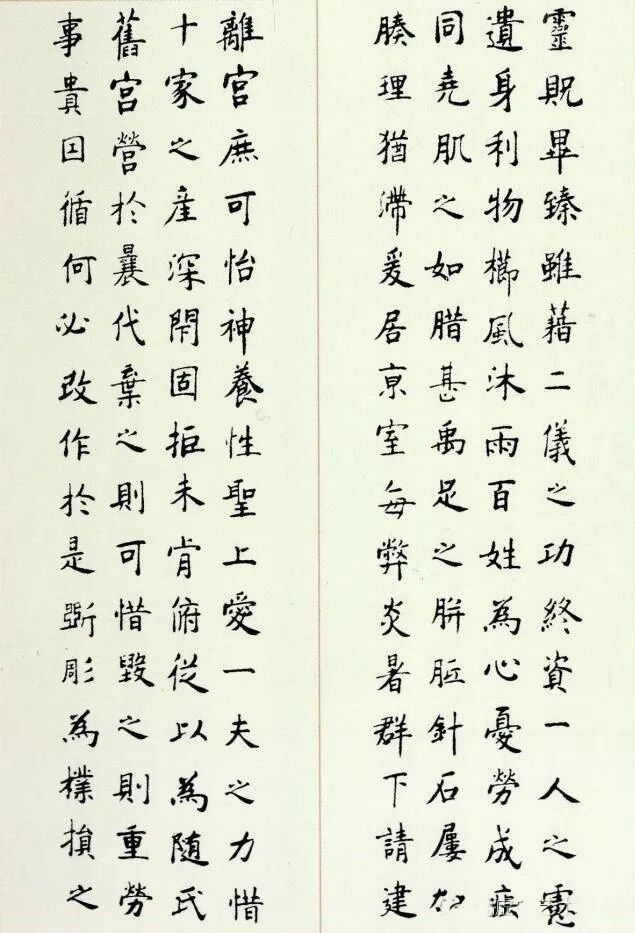 靈貺畢臻雖藉二儀之功終資一人之慮
遺身利物櫛風沐雨百姓為心憂勞成疾
同堯肌之如腊甚禹足之胼胝針石屢加
腠理猶滯爰居京室每弊炎暑群下請建
離宮庶可怡神養性聖上愛一夫之力惜
十家之產深閇固拒未肯俯從以為隨氏
舊宮營於曩代棄之則可惜毀之則重勞
事貴因循何必改作於是斲彫為樸損之